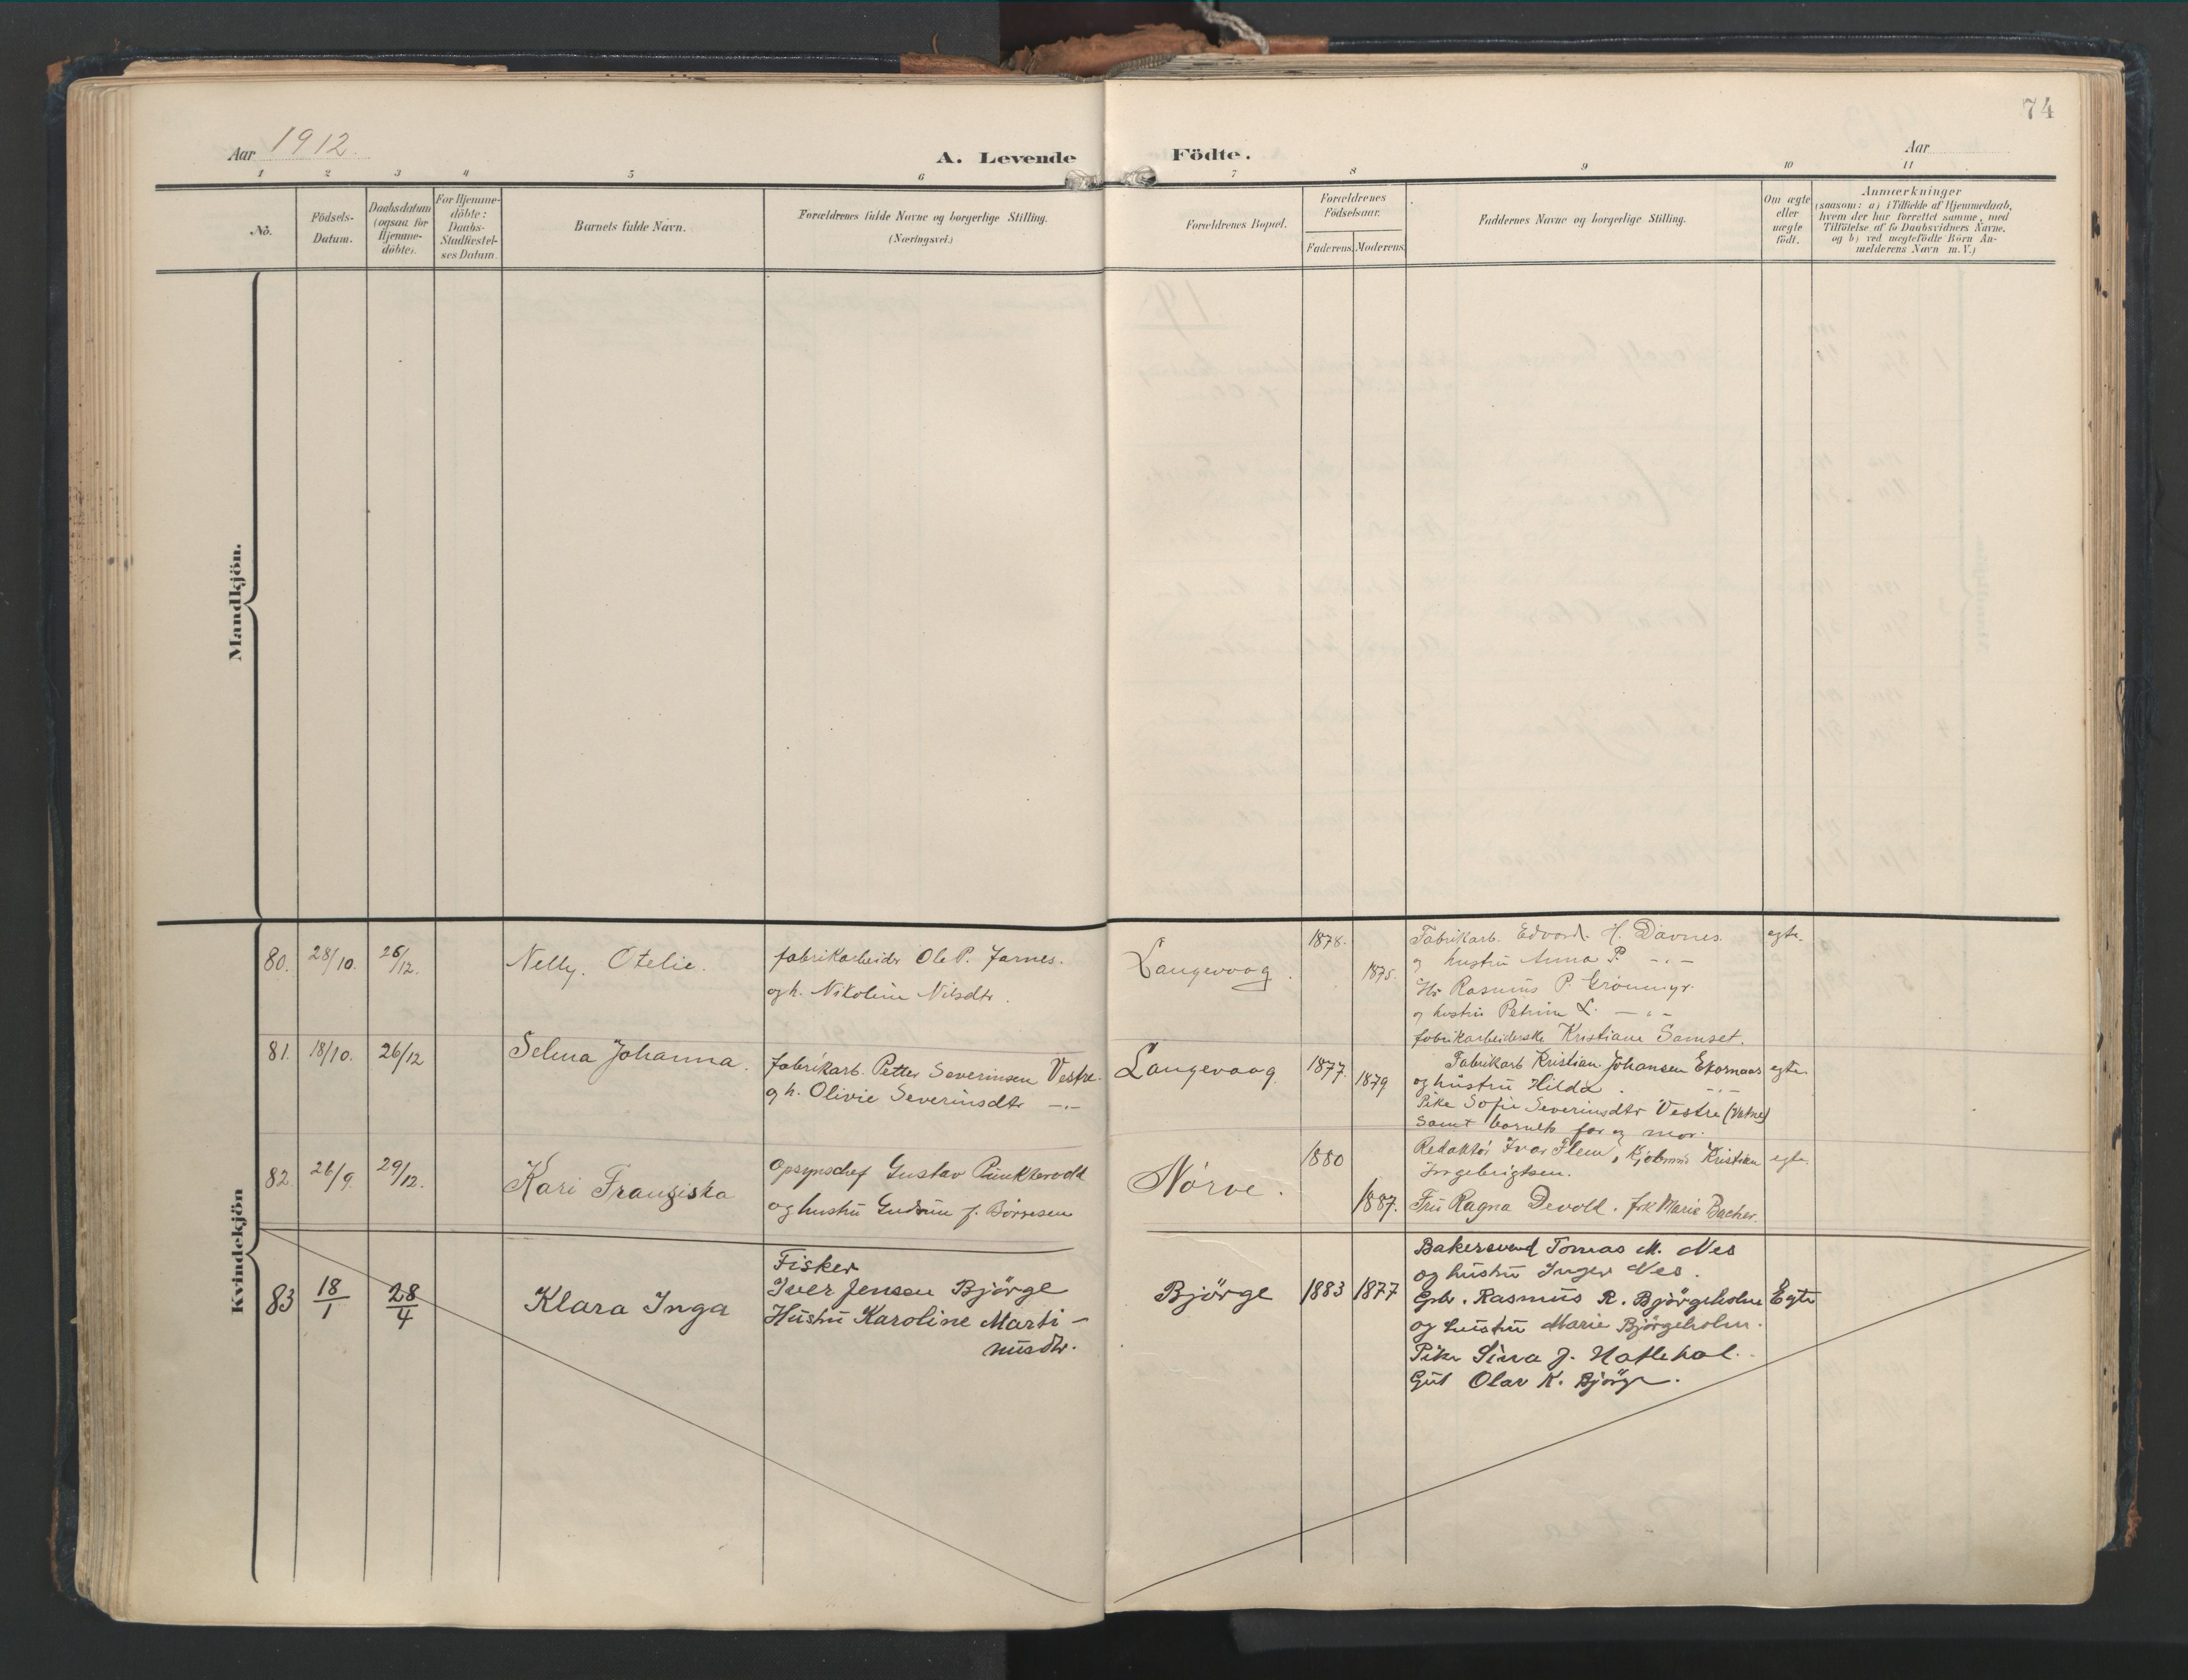 74
Aar 1912.
A. Levende Födte.
Aar
1 2 3 4 5 6 7 8 9 10 11
No.
Födsels-
Datum.
Daabsdatum
(ogsaa for
Hjemme-
döbte).
For Hjemme-
döbte:
Daabs-
Stadfæstel-
ses Datum.
Barnets fulde Navn.
Forældrenes fulde Navne og borgerlige Stilling.
(Næringsvei.)
Forældrenes Bopæl.
Forældrenes
Födselsaar.
Faderens. Moderens.
Faddernes Navne og borgerlige Stilling.
Om ægte
eller
uægte
födt.
Anmærkninger
(saasom: a) i Tilfælde af Hjemmedaab,
hvem der har forrettet samme, med
Tilföielse af to Daabsvidners Navne,
og b) ved uægtefödte Börn An-
melderens Navn m. V.)
Mandkjön.
Kvindekjön
80. 28/10. 26/12. Nelly. Otelie.
fabrikarbeidr Ole P. Jarnes.
og h. Nikoline Nilsdtr.
Langevaag. 1878. 1875.
Fabrikarb. Edvard. H. Davnes.
og hustru Anna P. -.-
Hr Rasmus P. Grönmyr.
og hustru Petrine L. -.-
fabrikarbeiderske Kristiane Samset.
egte.
81. 18/10. 26/12 Selma Johanna.
fabrikarb. Petter Severinsen Vestre.
og h. Olivie Severinsdtr -.-
Langevaag 1877. 1879
Fabrikarb Kristian Johansen Ekornaas
og hustru Hilda -.-
Pike Sofie Severinsdtr Vestre (Vatne)
Samt barnets far og mor.
egte.
82. 26/9. 29/12. Kari Franziska
Opsynschef Gustav Punktervold
og hustru Gudrun f. Börresen
Nörve. 1880 1887.
Redaktör Ivar Flem, Kristian
Ingebrigtsen.
Fru Ragna Devold. frk Marie Backer.
egte.
83 18/1 28/4 Klara Inga
Fisker
Iver Jensen Björge
Hustru Karoline Marti-
nusdtr.
Björge 1883 1877
Bakersvend Tomas M. Nes
og hustru Inger Nes.
Gbr. Rasmus R. Björgeholm
og hustru Marie Björgeholm.
Pike Sina J. Hatlehol.
Gut Olav K. Björge.
Egte